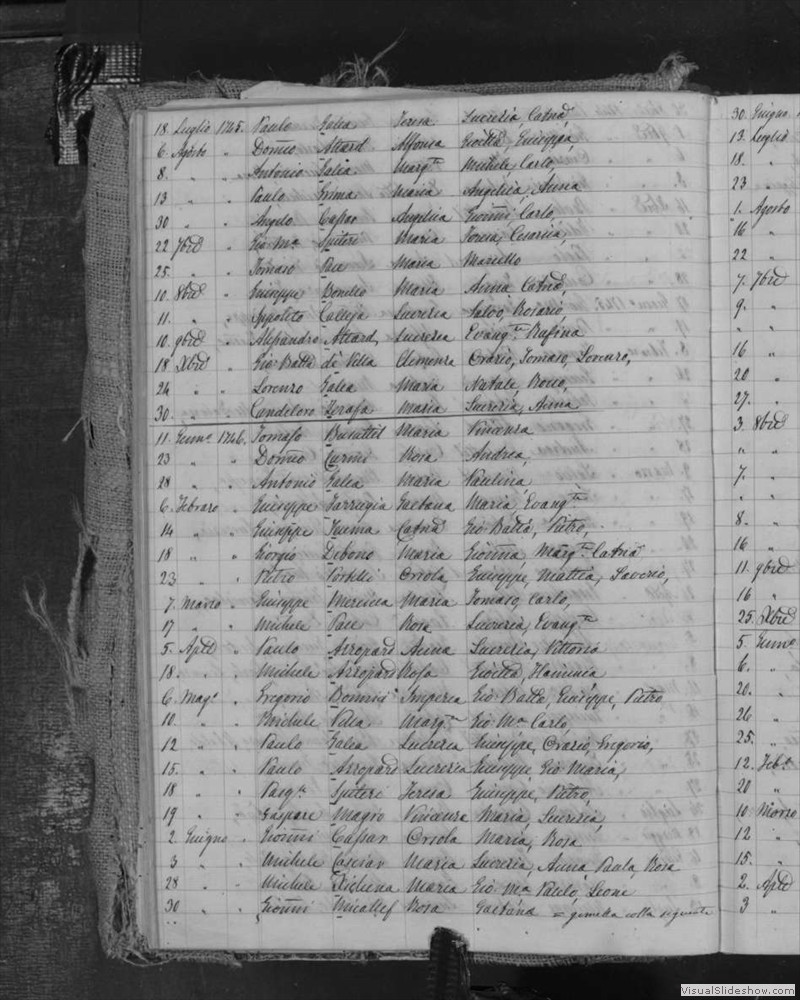 18 Luglio 1745. Paulo Galea Teresa Lucrezia, Catnã,
6 Agosto " Domco Attard Alfonsa Gioitta, Giuseppa,
8 " " Antonio Galea Margta Michele, Carlo,
13 " " Paulo Grima Maria Angelica, Anna
30 " " Angelo Capar Angelica Gioñni Carlo,
22 7bre " Gio Ma Spiteri Maria Teresa,
25 " " Tomaso Pace Maria Marcello
10 8bre " Giuseppe Bonello Maria Anna Catnã,
11 " " Ippolito Calleja Lucrezia Salvo, Rosario,
10 9bre " Alessandro Attard, Lucrezia Evangta Rufina
18 Xbre " Gio Batta de Villa Clemenza Orazio, Tomaso, Lorenzo,
24 " " Lorenzo Galea Maria Natale Rocco,
30 " " Candeloro Zerafa Maria Lucrezia, Anna
11 Genno 1746. Tomaso Busuttil Maria Vincenza
23 " " Domco Curmi Rosa Andrea,
28 " " Antonio Galea Maria Paulina,
6 Febraro " Giuseppe Farrugia Gaetana Maria, Evangta
14 " " Giuseppe Catnã Gio Batta, Pietro,
18 " " Giorgio Debono Maria Gioñna, Margta Catnã
23 " " Pietro Portelli Orsola Giuseppe, Mattia, Saverio,
7 Marzo " Giuseppe Mercieca Maria Tomaso, Carlo,
17 " " Michele Pace Rosa Lucrezia, Evangta
5 Aple " Paulo Arropard Anna Lucrezia, Vittoria
18 " " Michele Arropard Rosa Gioitta,
6 Mago " Gregorio Bonnici Imperia Gio Batta, Giuseppe, Pietro
10 " " Michele Vella Margta Gio Ma Carlo,
12 " " Paulo Galea Lucrezia Giuseppe, Orazio, Gregorio,
15 " " Paulo Arropard Lucrezia Giuseppe, Gio Maria,
18 " " Pasqle Spiteri Teresa Giuseppe, Pietro,
19 " " Gaspare Magro Vincenza Maria, Lucrezia,
2 Giugno " Gioñni Cassar Orsola Maria, Rosa
3 " " Michele Casciar Maria Lucrezia, Anna, Paula, Rosa
28 " " Michele Xicluna Maria Gio Ma Paulo, Leone
30 " " Gioñni Micallef Rosa Gaetana = gemella colla seguente
30. Giugno
13. Luglio
18. "
23 "
1. Agosto
16 "
22 "
7. 7bre
9. "
" "
16 "
20 "
27. "
3. 8bre
" "
7. "
" "
8. "
16 "
11. 9bre
16 "
25. Xbre
5. Genno
6. "
20. "
26 "
25. "
12. Febo
20 "
10. Marzo
12 "
15. "
2. Aple
3 "
VisualSlideshow.com